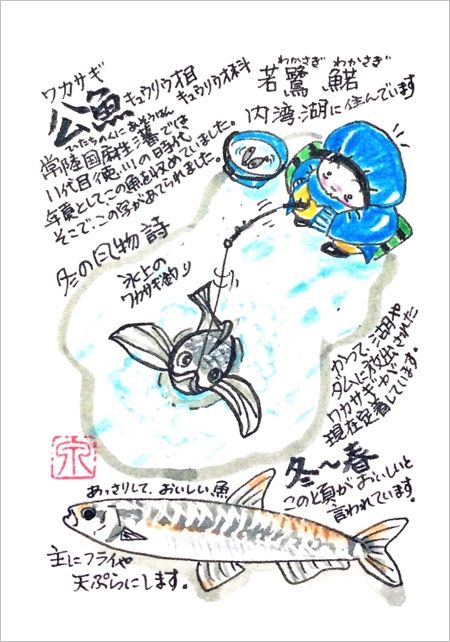 ワカサギ
公魚 キュウリウオ目
キュウリウオ科
わかさぎ わかさぎ
若鷺 鰙
内湾、湖に住んでいます
常陸国麻生藩では
11代目(徳川)の時代、
年貢としてこの魚を収めていました。
そこで、この字があてられました。
冬の風物詩
氷上の
ワカサギ釣り
かつて、湖や
ダムに放出された
ワカサギが、
現在定着しています。
冬〜春
この頃がおいしいと
言われています。
あっさりして、おいしい魚
主にフライや
天ぷらにします。